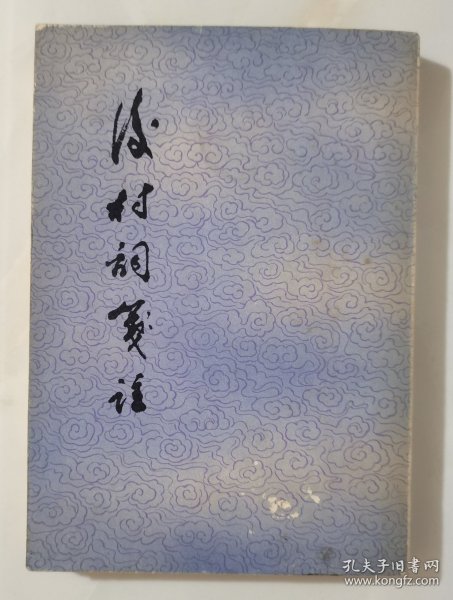 後村詞箋註
孔夫子旧书网
www.kongfz.com